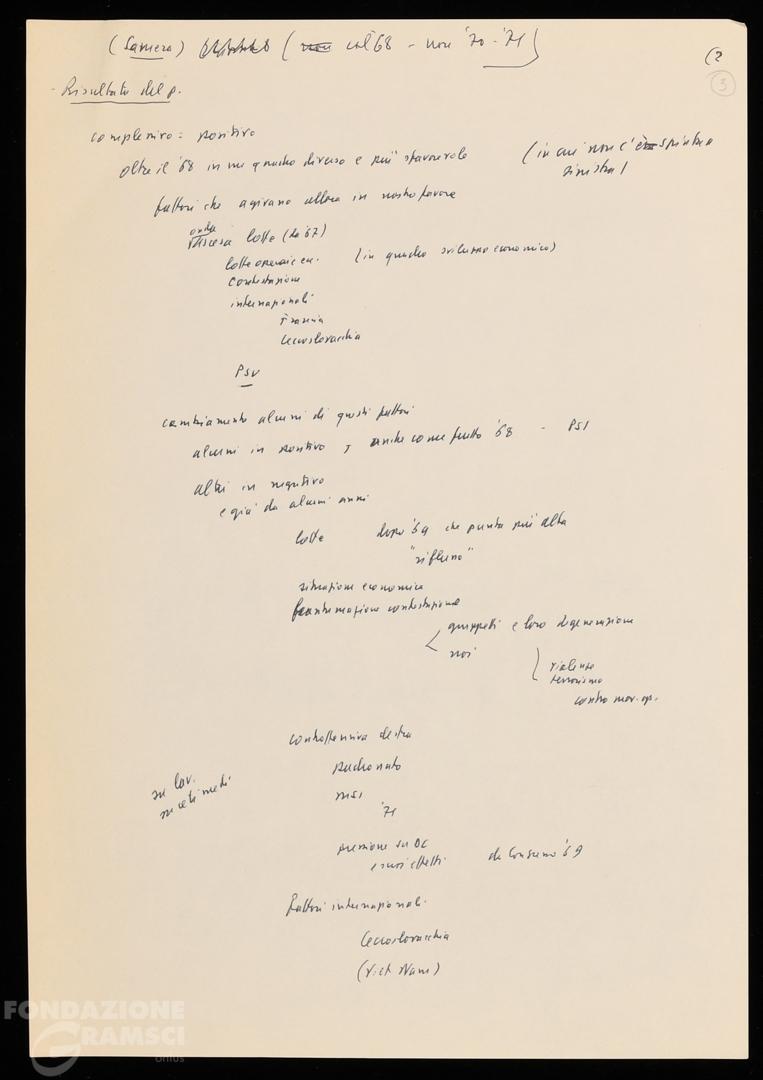 (Camera) (non col '68 - non '70 - '71)
(2
3
- Risultato del p.
complessivo = positivo
oltre il '68 in un quadro diverso e più sfavorevole (in cui non c'è spinta a sinistra)
fattori che agivano allora in nostro favore
onda
ascesa lotte (da '67)
lotte operaie ecc. (in quadro sviluppo economico)
contestazione
internazionali
Francia
Cecoslovacchia
PSU
cambiamento alcuni di questi fattori
alcuni in positivo, anche come frutto '68 - PSI
altri in negativo
e già da alcuni anni
lotte dopo '69 che punta più alta
"riflusso"
situazione economica
frantumazione contestazione
gruppetti e loro degenerazione
noi
violenza
terrorismo
contro mov. op.
controffensiva destra
padronato
su lav.
su ceti medi
MSI
'71
pressione su DC
e suoi effetti da Consumo '69
fattori internazionali
Cecoslovacchia
(Viet Nam)
FONDAZIONE
GRAMSCI
onlus